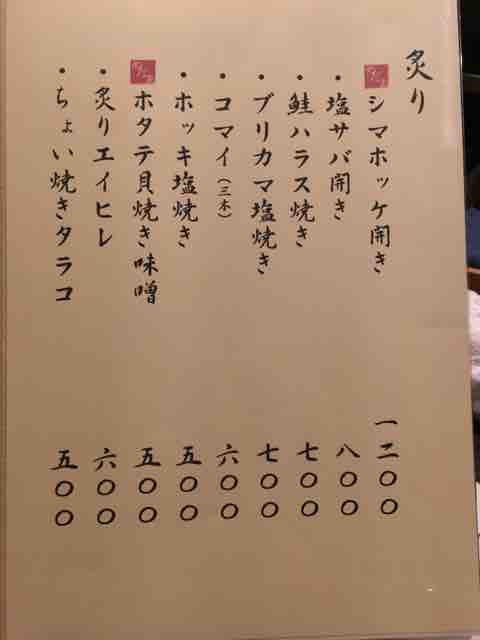 炙り
シマホッケ開き 一二〇〇
・塩サバ開き 八〇〇
・鮭ハラス焼き 七〇〇
・ブリカマ塩焼き 七〇〇
・コマイ(三本) 六〇〇
・ホッキ塩焼き 五〇〇
ホタテ貝焼き味噌 五〇〇
・炙りエイヒレ 六〇〇
・ちょい焼きタラコ 五〇〇